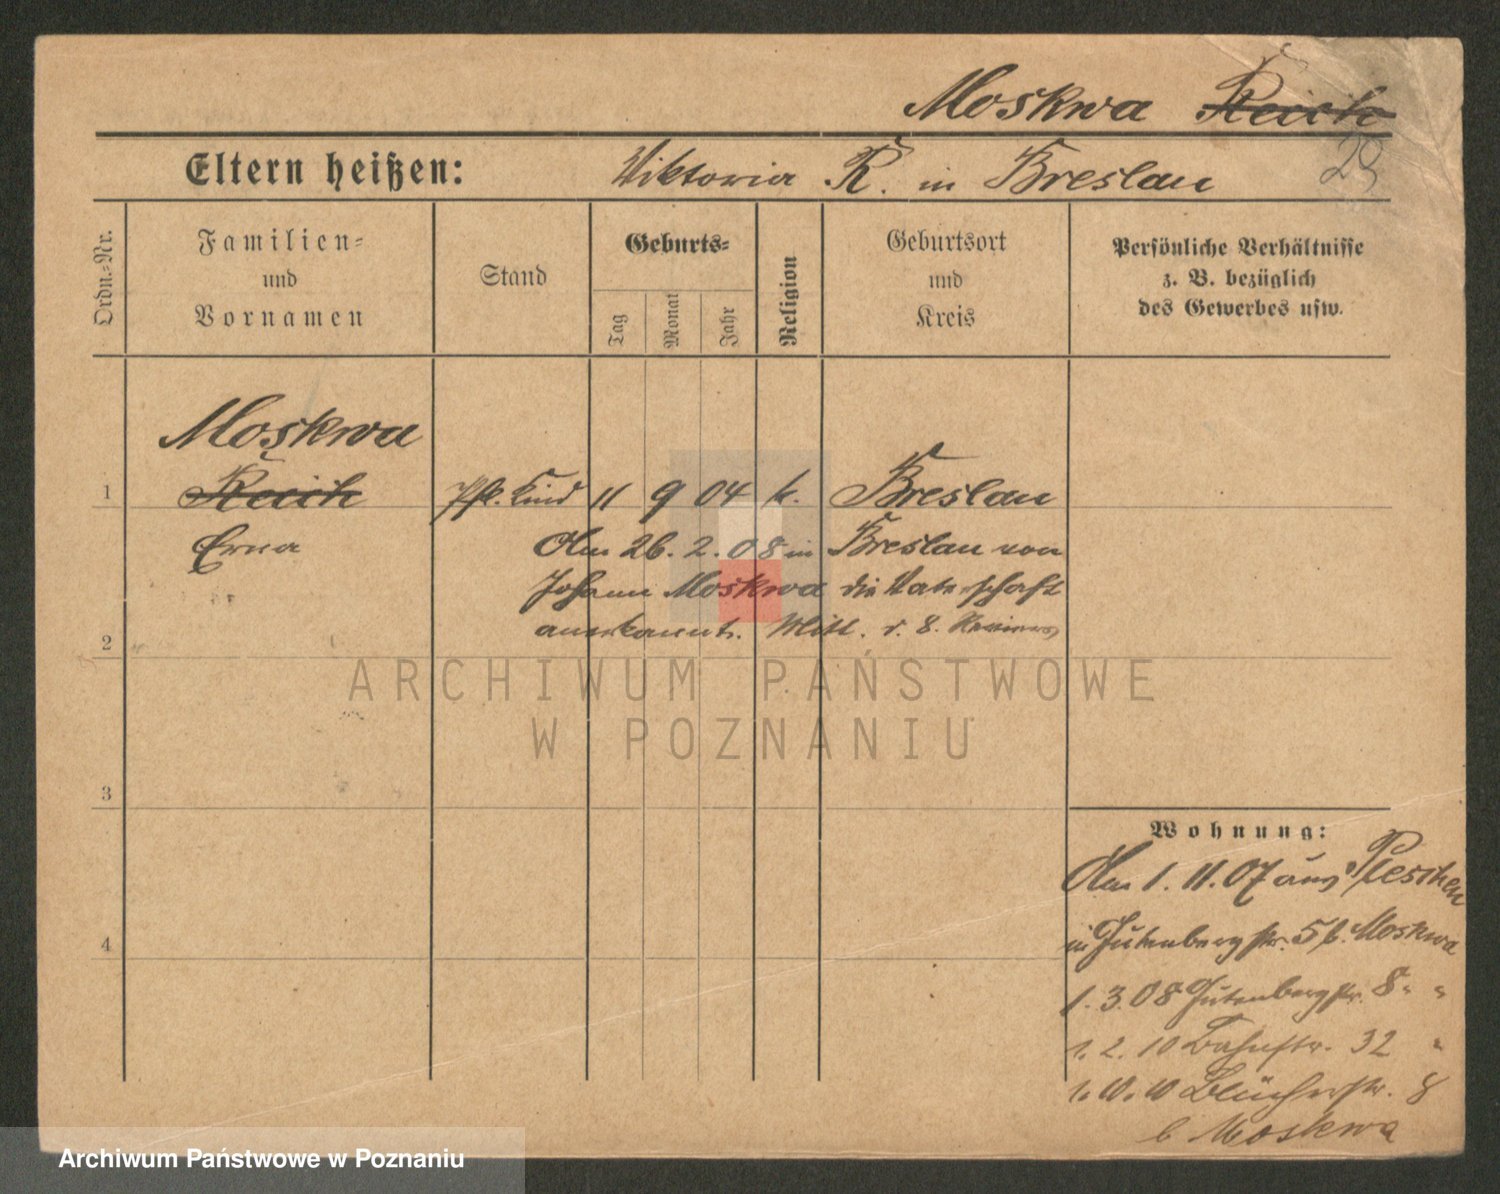 Moskwa Reich
29
Eltern heißen: Wiktoria R. in Breslau
Ordn.-Nr.
Familien-
und
Vornamen
Stand
Geburts-
Tag
Monat
Jahr
Religion
Geburtsort
und
Kreis
Persönliche Verhältnisse
z. B. bezüglich
des Gewerbes usw.
Moskwa
1 Reich Pfl. Kind 11 9 04 k. Breslau
Erna
Am 26. 2. 08 in Breslau von
Johann Moskwa die Vaterschaft
anerkannt. Mitt. d. 8. Reviers
2
3
4
Wohnung:
Am 1. 11. 07 aus Pleschen
in Gutenbergstr. 5 b. Moskwa
1. 3. 08 Gutenbergstr. 8 " "
1. 2. 10 Bahnstr. 32 "
1. 10. 10 Blücherstr. 8
b Moskwa
ARCHIWUM PAŃSTWOWE
W POZNANIU
Archiwum Państwowe w Poznaniu